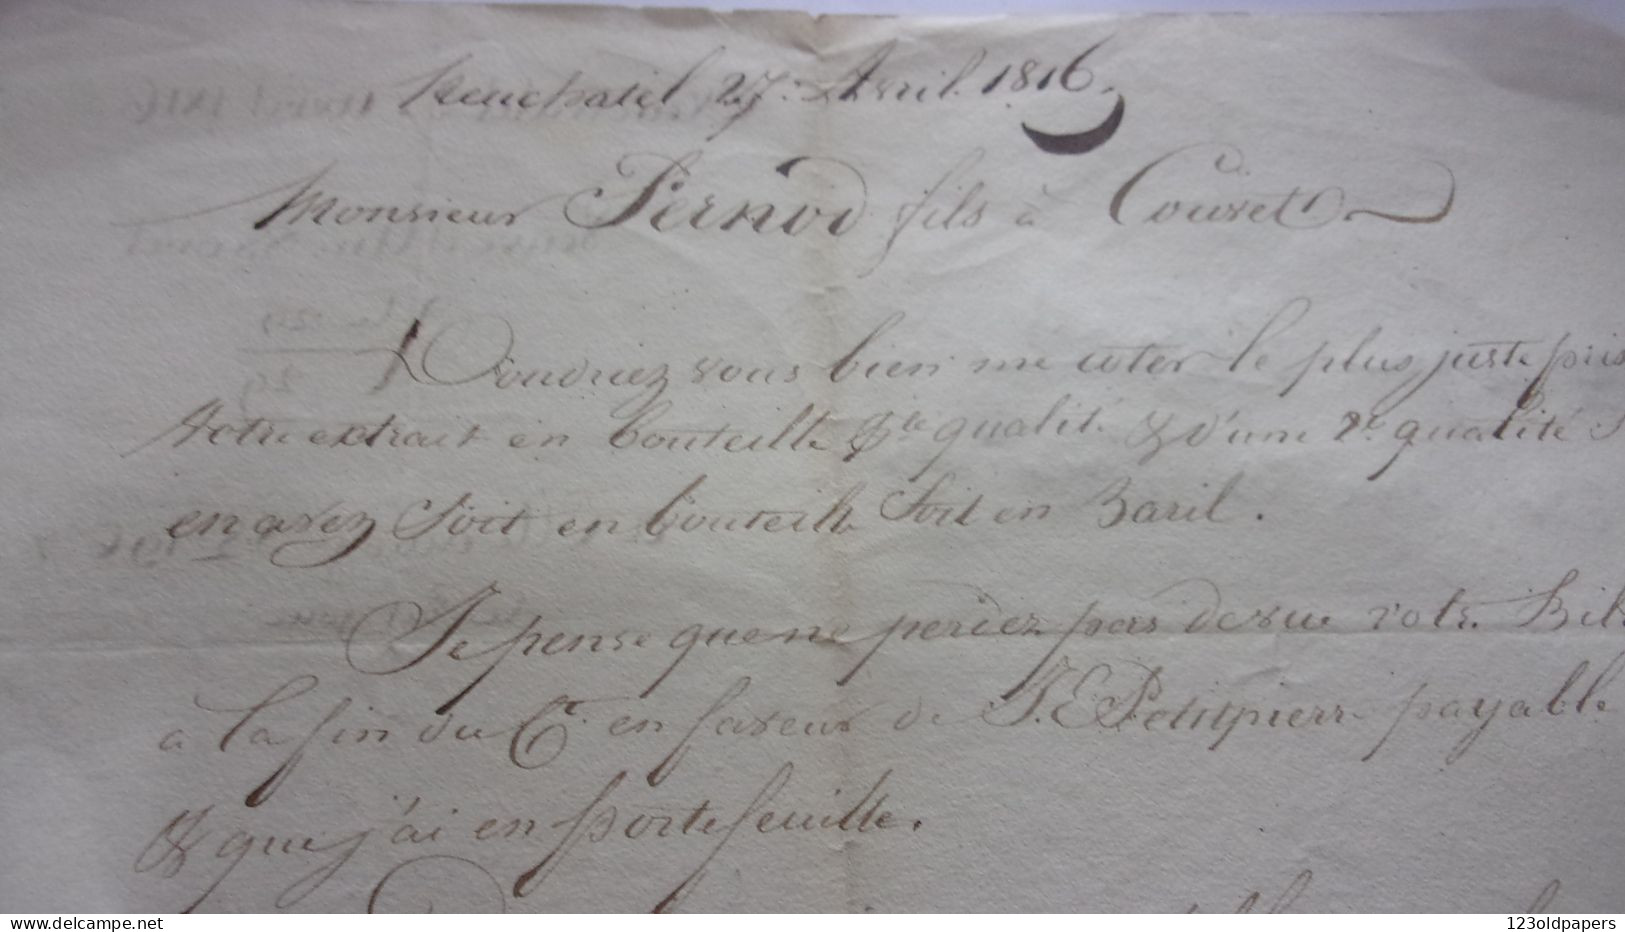 Neuchatel 27. Avril 1816.
Monsieur Pernod fils à Couvet
Voudriez vous bien me coter le plus juste prix
votre extrait en bouteille 1re qualité & d'une 2e qualité
en avez soit en bouteille soit en Baril.
Je pense que ne perdez pas de vue votr. Bil
à la fin du Ct. en faveur de J. E Petitpierre payable
& que j'ai en portefeuille.
www.delcampe.net
123oldpapers